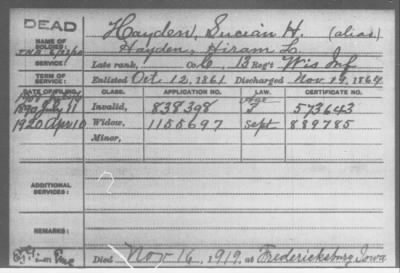 DEAD
NAME OF SOLDIER: Hayden, Lucian H. (alias)
Hayden, Hiram L.
SERVICE: Late rank, Co. C, 13 Reg't Wis Inf
TERM OF SERVICE: Enlisted Oct. 12, 1861 Discharged Nov. 19, 1864
DATE OF FILING. CLASS. APPLICATION NO. LAW. CERTIFICATE NO.
1890 July 11 Invalid, 838398 Age F 573643
1920 Apr 10 Widow, 1155697 Sept 889785
Minor,
ADDITIONAL SERVICES:
REMARKS:
Died Nov 16, 1919, at Fredericksburg Iowa